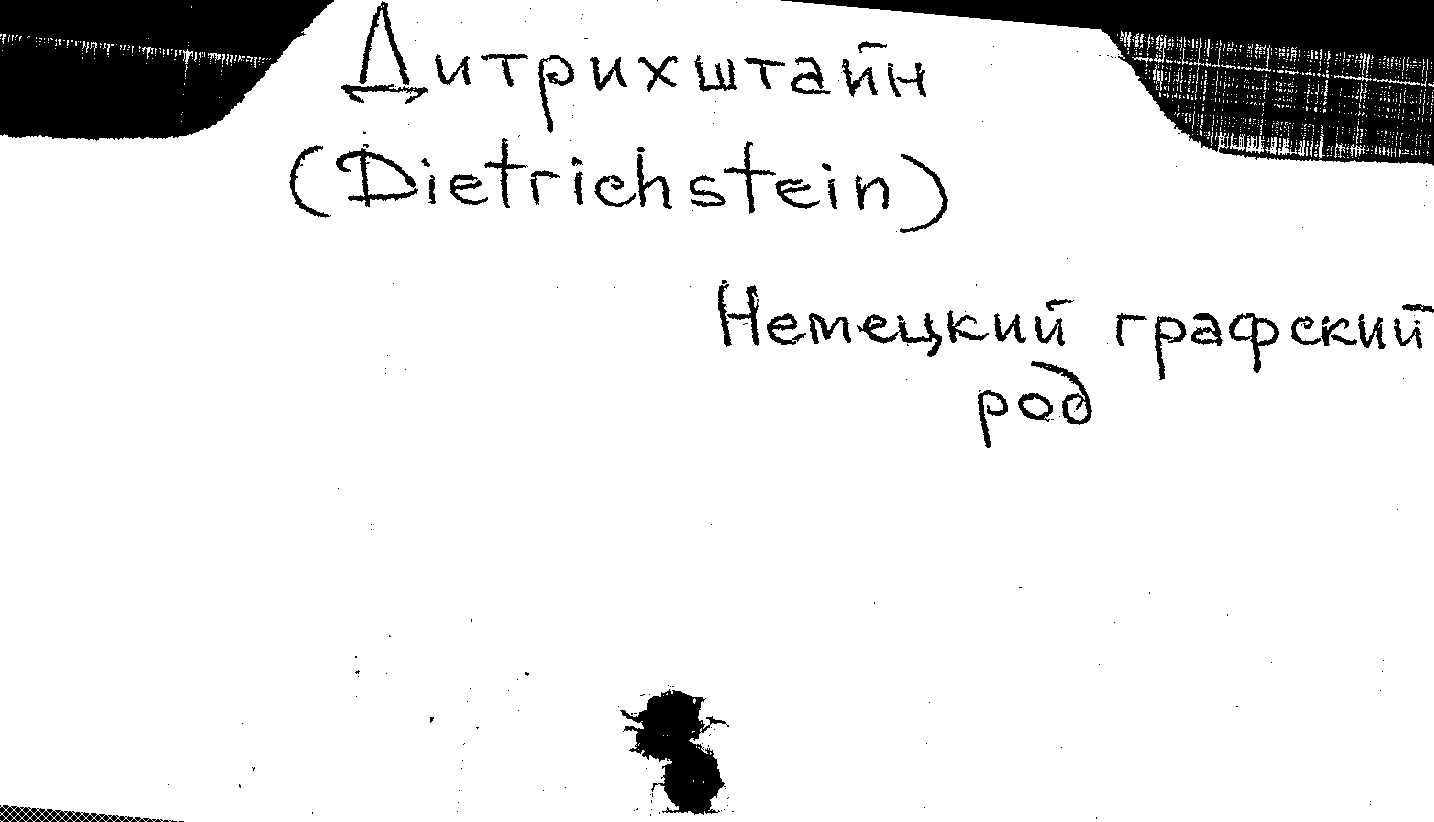 Дитрихштайн
(Dietrichstein)
Немецкий графский
род